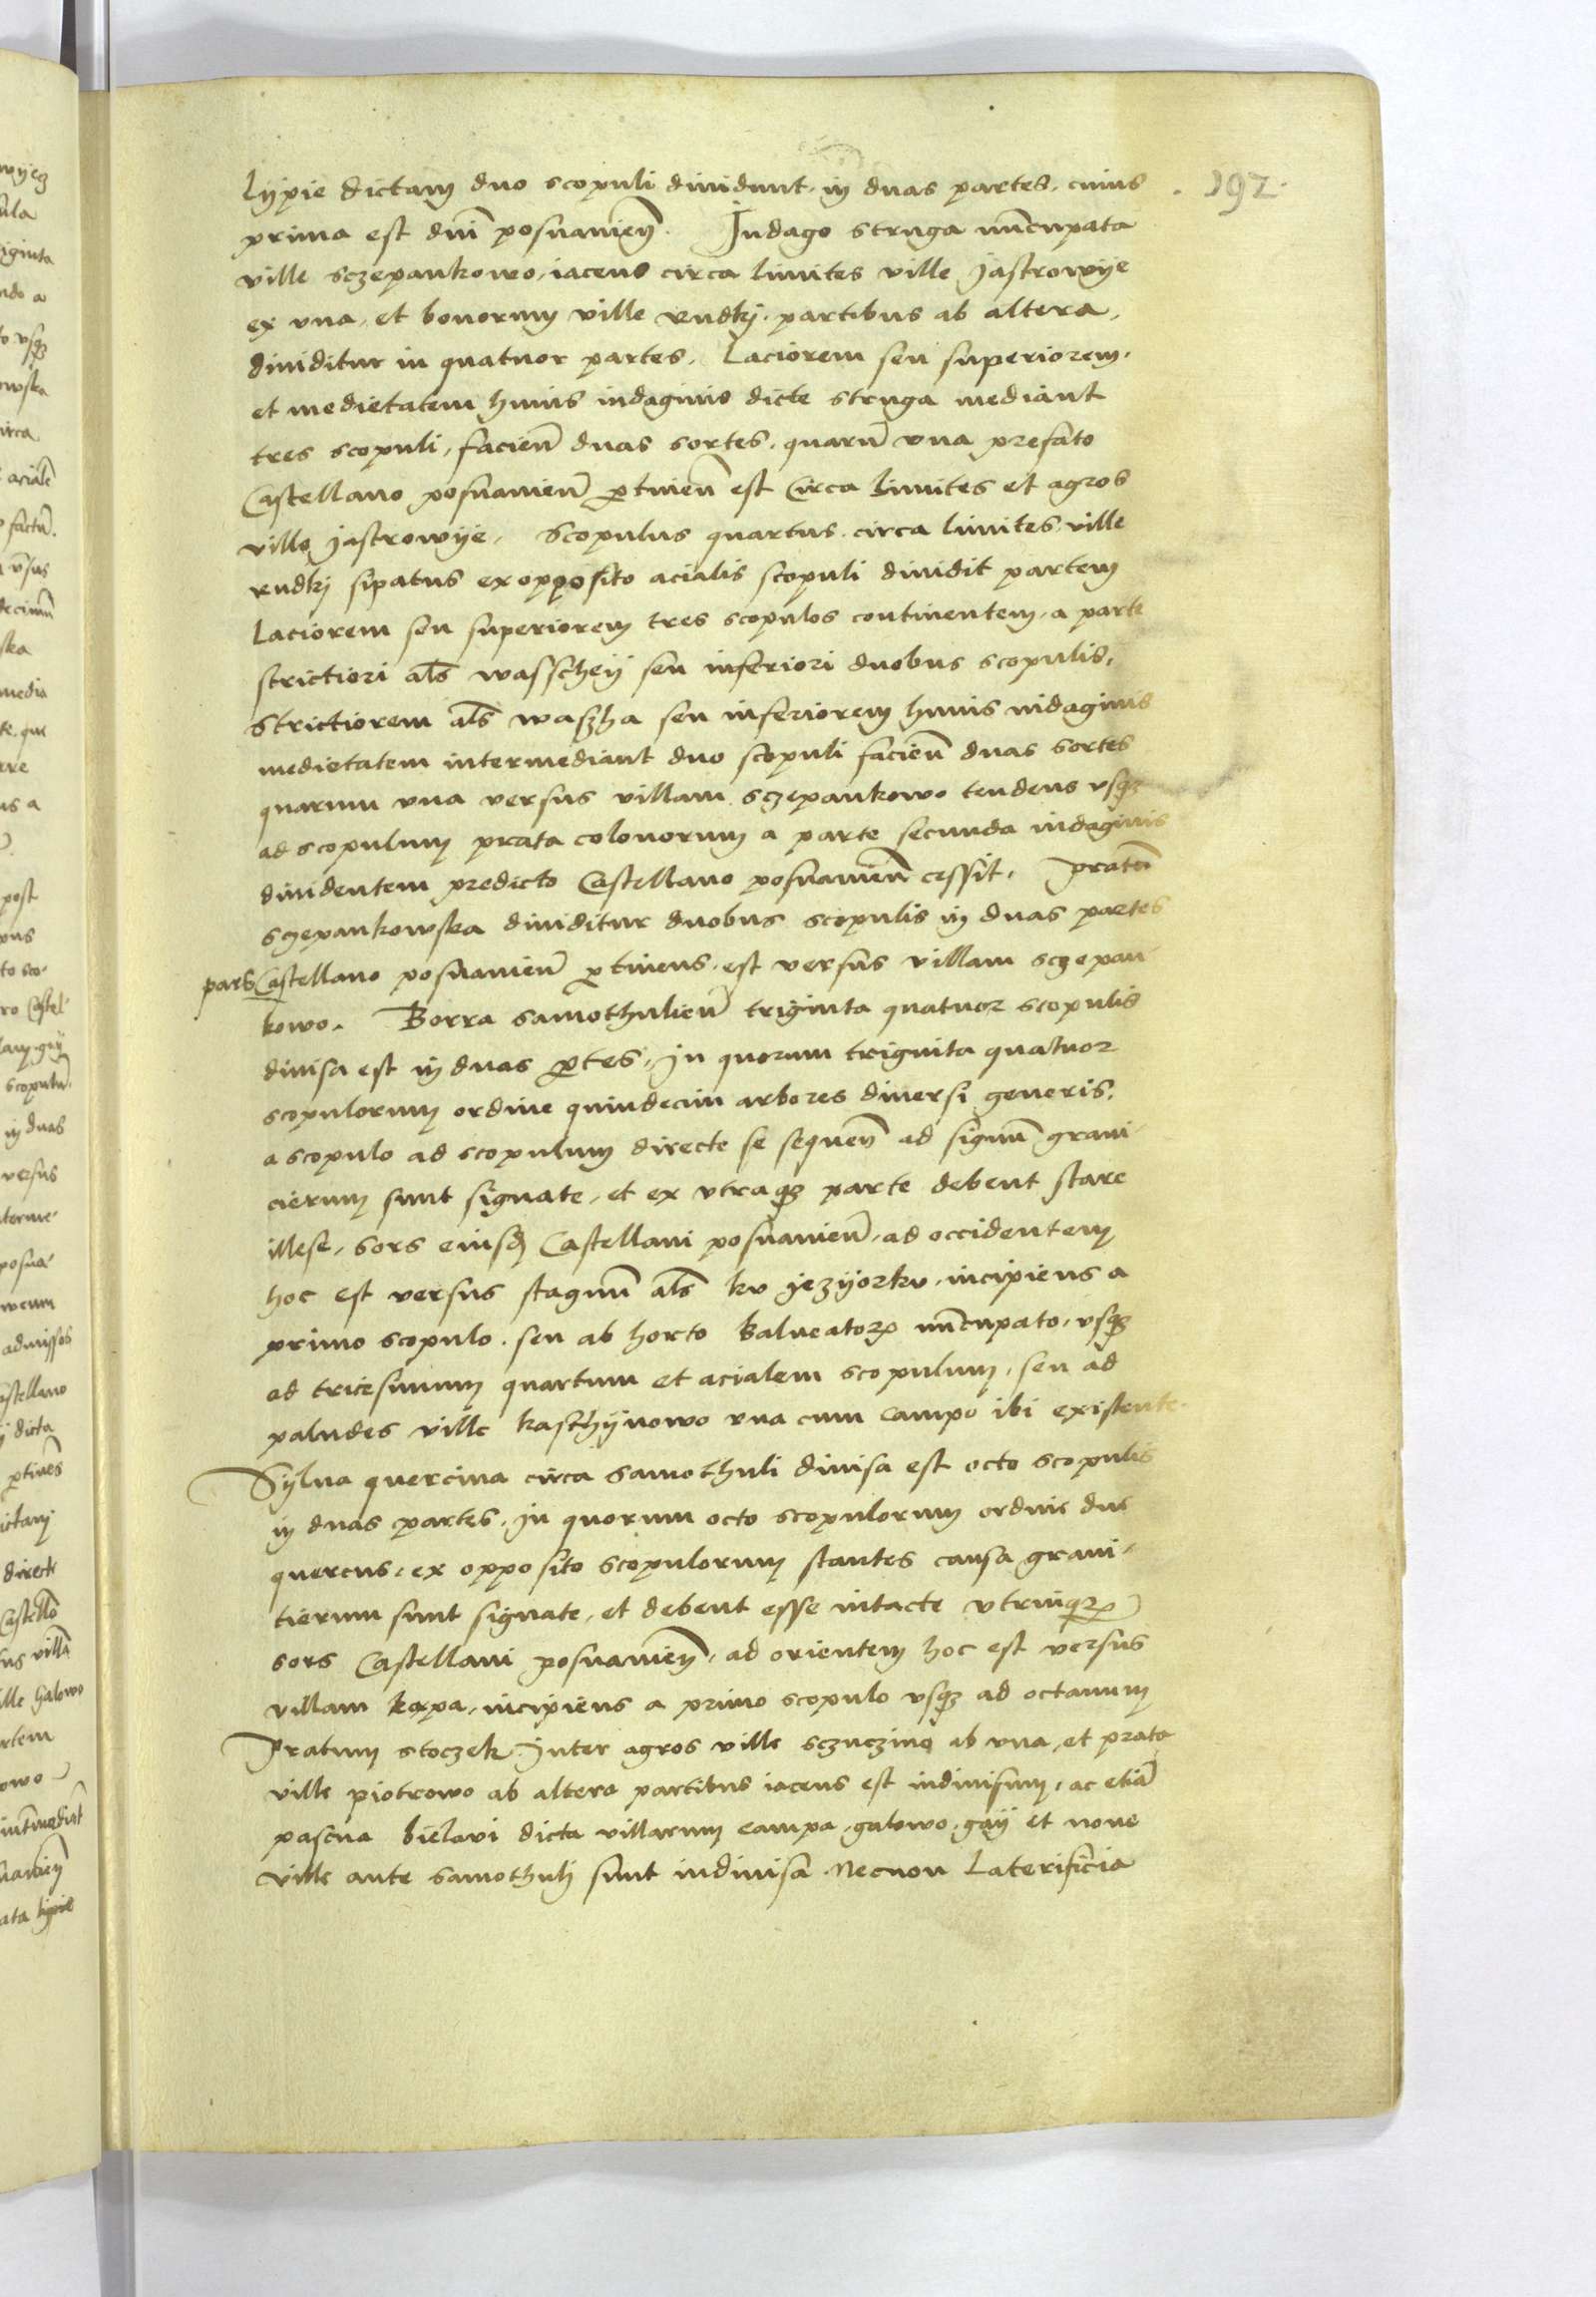 192
Lijpie dictam duo scopuli diuidunt in duas partes, cuius
prima est dnī posnanieñ. Indago struga nūcupata
ville sczepankowo, iacens circa limites ville Jastrowije
ex vna, et bonorum ville rudkj partibus ab altera,
diuiditur in quatuor partes. Laciorem seu superiorem,
et medietatem huius indaginis dicte struga mediant
tres scopuli, facieñ duas sortes, quarū vna prefato
Castellano posnanieñ ptinēn est Circa limites et agros
ville Jastrowije. Scopulus quartus circa limites ville
rudkj sipatus ex opposito acialis scopuli diuidit partem
Laciorem seu superiorem tres scopulos continentem, a parte
strictiori als wasschey seu inferiori duobus scopulis,
Strictiorem als waszha seu inferiorem huius indaginis
medietatem intermediant duo scopuli facieñ duas sortes
quarum vna versus villam sczepankowo tendens vsqz
ad scopulum prata colonorum a parte secunda indaginis
diuidentem predicto Castellano posnanieñ cessit. Pratū
sczepankowska diuiditur duobus scopulis in duas partes
pars Castellano posnanieñ ptinens est versus villam sczepan
kowo. Borra samothulieñ triginta quatuor scopulis
diuisa est in duas ptes, In quorum triginta quatuor
scopulorum ordine quindecim arbores diuersi generis,
a scopulo ad scopulum directe se sequeñ ad signū grani-
cierum sunt signate, et ex vtraqz parte debent stare
illese, sors eiusd Castellani posnanieñ, ad occidentem
hoc est versus stagnū als ku jezijorku, incipiens a
primo scopulo, seu ab horto balneatorꝫ nūcupato, vsqz
ad tricesimum quartum et acialem scopulum, seu ad
paludes ville kasthijnowo vna cum campo ibi existente.
Sylua quercina circa samothuli diuisa est octo scopulis
in duas partes, In quorum octo scopulorum ordine due
quercus, ex opposito scopulorum stantes causa grani-
tierum sunt signate, et debent esse intacte vtrinqz
sors Castellani posnanieñ, ad orientem hoc est versus
villam kąpa, incipiens a primo scopulo vsqz ad octauum
Pratum stoczek Inter agros ville sczuczino ab vna, et prata
ville piotrowo ab altera partibus iacens est indiuisum, ac etiā
pascua bielawi dicta villarum campa, galowo, gay et noue
ville ante samothulj sunt indiuisa. Necnon Laterificia